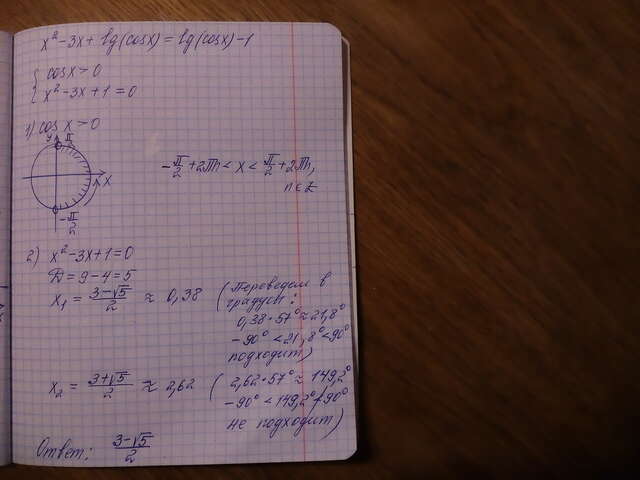 x² - 3x + lg(cosx) = lg(cosx) - 1
{ cosx > 0
x² - 3x + 1 = 0
1) cos x > 0
y π/2
x
-π/2
-π/2 + 2πn < x < π/2 + 2πn,
n ∈ Z
2) x² - 3x + 1 = 0
D = 9 - 4 = 5
x₁ = (3-√5)/2 ≈ 0,38 (Переведем в
градусы:
0,38·57° ≈ 21,8°
-90° < 21,8° < 90°
подходит)
x₂ = (3+√5)/2 ≈ 2,62 (2,62·57° ≈ 149,2°
-90° < 149,2° ≮ 90°
не подходит)
Ответ: (3-√5)/2